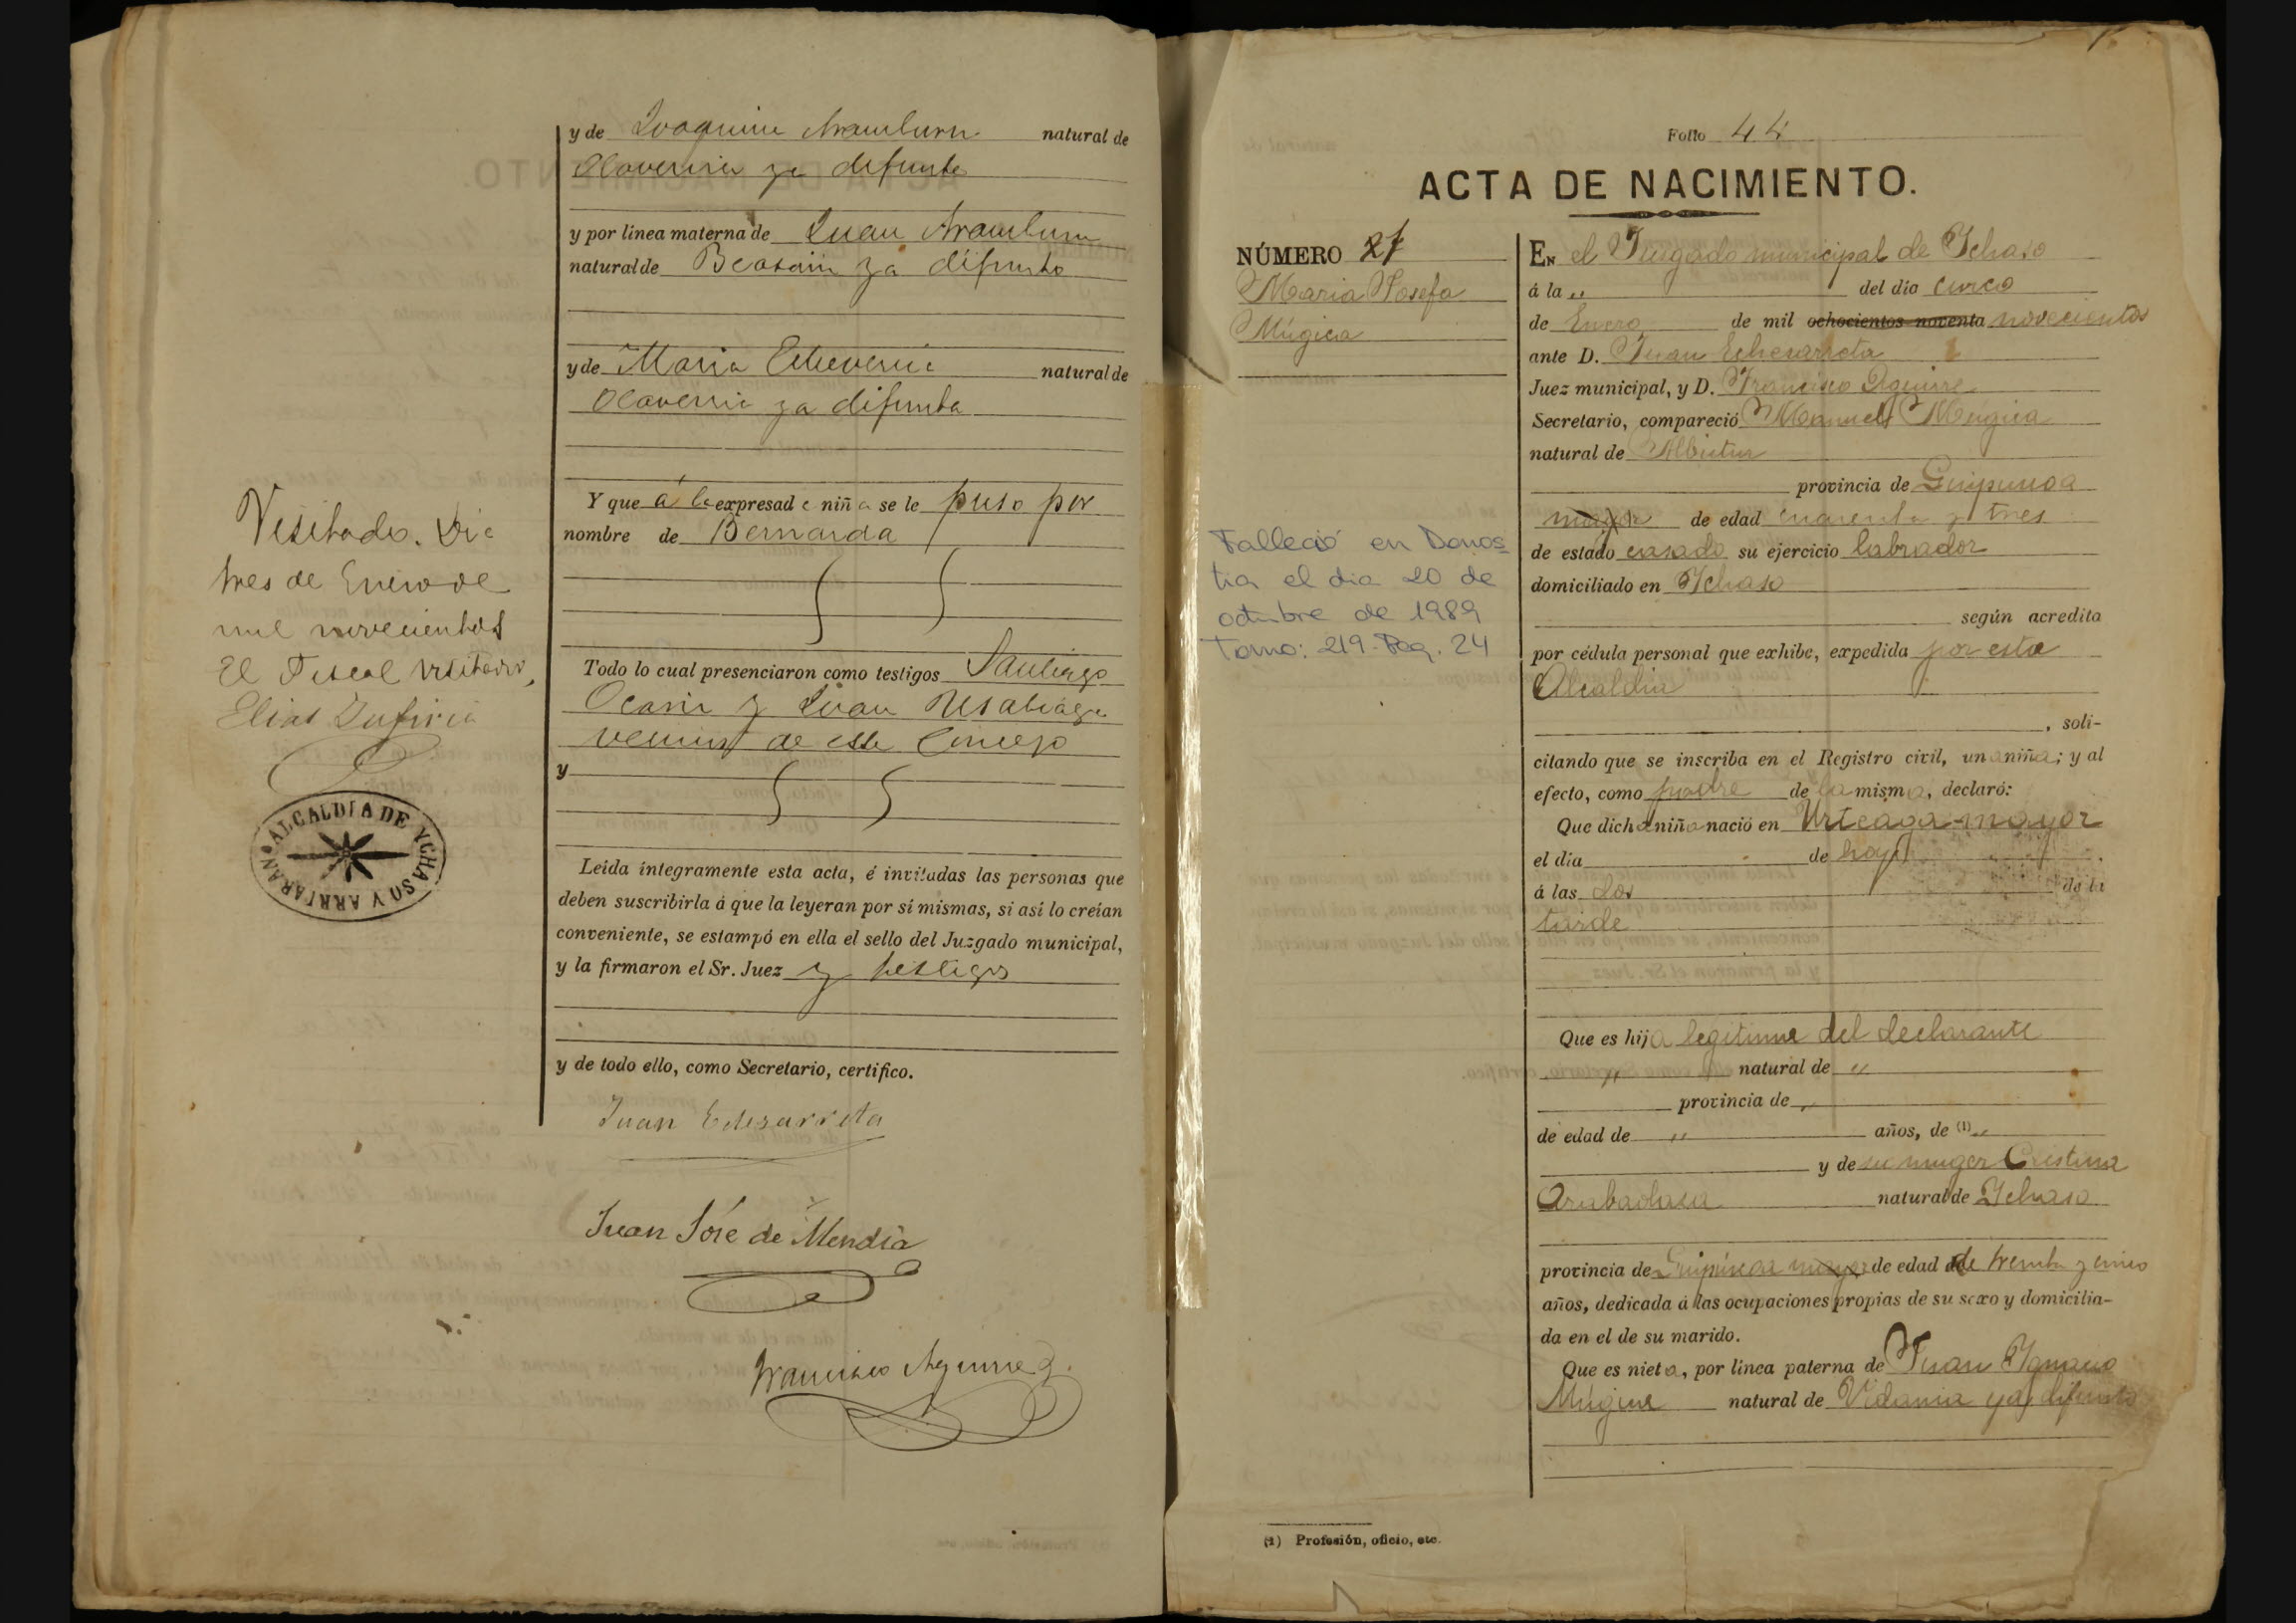 y de Joaquina Aramburu natural de
Olaverria ya difunta
y por línea materna de Juan Aramburu
natural de Beasain ya difunto
y de Maria Echeverria natural de
Olaverria ya difunta
Y que á la expresada niña se le puso por
nombre de Bernarda
Todo lo cual presenciaron como testigos Santiago
y Juan Usabiaga
vecinos de este Concejo
y
Leída íntegramente esta acta, é invitadas las personas que
deben suscribirla á que la leyeran por sí mismas, si así lo creían
conveniente, se estampó en ella el sello del Juzgado municipal,
y la firmaron el Sr. Juez y testigos
y de todo ello, como Secretario, certifico.
Juan Echezarreta
Juan José de Mendia
Francisco Aguirre
Visitado. Dia
tres de Enero de
mil novecientos
El Fiscal visitador,
Elias
ALCALDIA DE YCHASO Y ARRIARAN
Folio 44
ACTA DE NACIMIENTO.
NÚMERO
Maria Josefa
Múgica
Falleció en Donos=
tia el dia 20 de
octubre de 1989
Tomo: 219. Pag. 24
EN el Juzgado municipal de Ichaso
á la " del día cinco
de Enero de mil ochocientos noventa novecientos
ante D. Juan Echezarreta
Juez municipal, y D. Francisco Aguirre
Secretario, compareció Manuel Múgica
natural de Albistur
provincia de Guipuzcoa
mayor de edad cuarenta y tres
de estado casado su ejercicio labrador
domiciliado en Ichaso
según acredita
por cédula personal que exhibe, expedida por esta
Alcaldia
, soli-
citando que se inscriba en el Registro civil, una niña; y al
efecto, como padre de la misma, declaró:
Que dicha niña nació en Urteaga-mayor
el día de hoy
á las dos de la
tarde
Que es hija legitima del declarante
" natural de "
provincia de "
de edad de " años, de (1) "
y de su muger Cristina
Arabaolaza natural de Ichaso
provincia de Guipúzcoa mayor de edad de treinta y cinco
años, dedicada á las ocupaciones propias de su sexo y domicilia-
da en el de su marido.
Que es nieta, por línea paterna de Juan Ignacio
Múgica natural de Vidania ya difunto
(1) Profesión, oficio, etc.